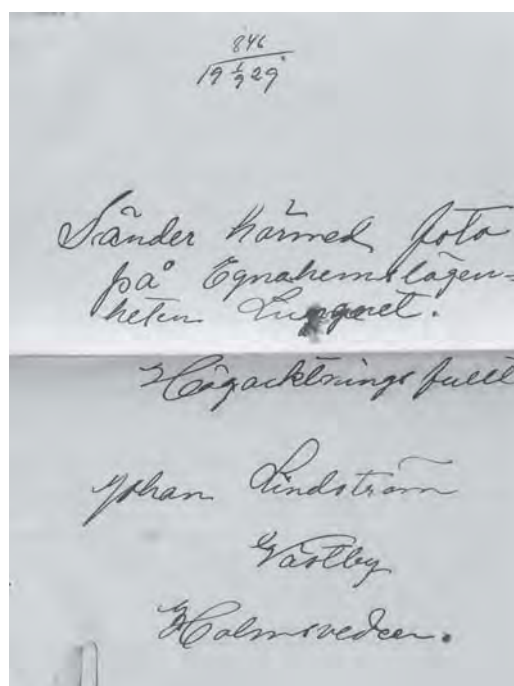 846
19 1/9 29
Sänder härmed foto
på Egnahemslägen-
heten Lugnet.
Högacktningsfullt
Johan Lindström
Västby
Holmsveden.